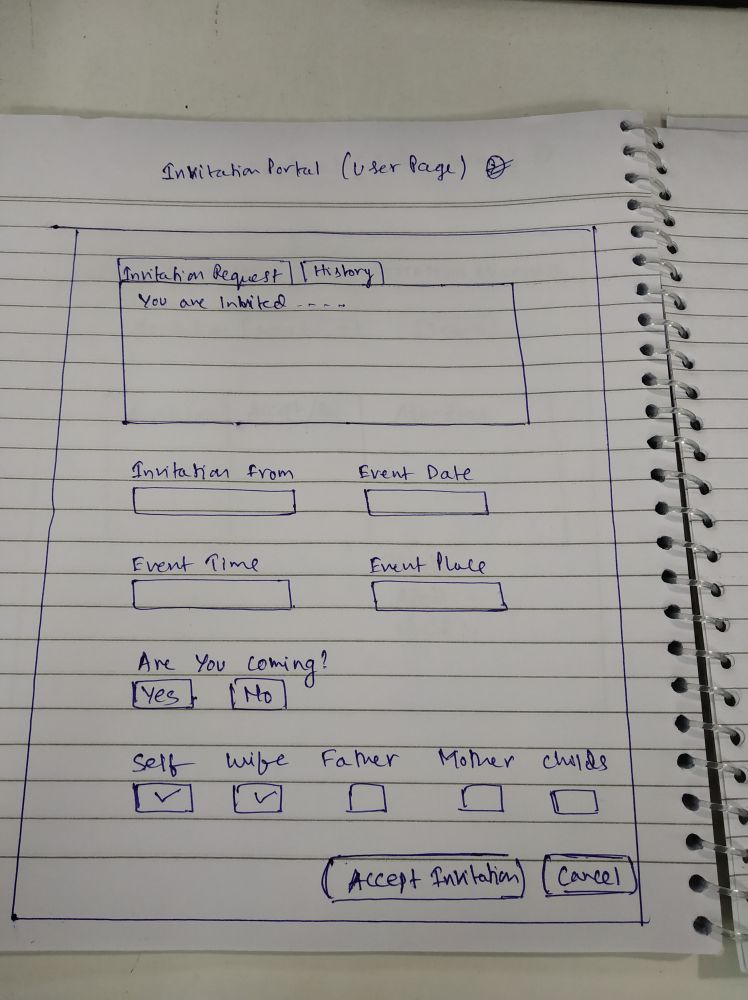 Invitation Portal (User Page) 2
Invitation Request History
You are Invited ----
Invitation from Event Date
Event Time Event Place
Are You Coming?
Yes No
Self Wife Father Mother Childs
Accept Invitation Cancel